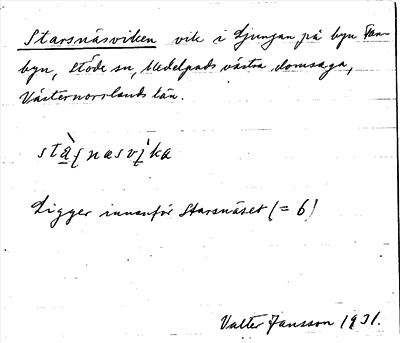 Starsnäsviken vik i Ljungan på byn Fan-
byn, Stöde sn, Medelpads västra domsaga,
Västernorrlands län.
stàʃnæsvi̯ka
Ligger innanför Starsnäset (= 6)
Valter Jansson 1931.